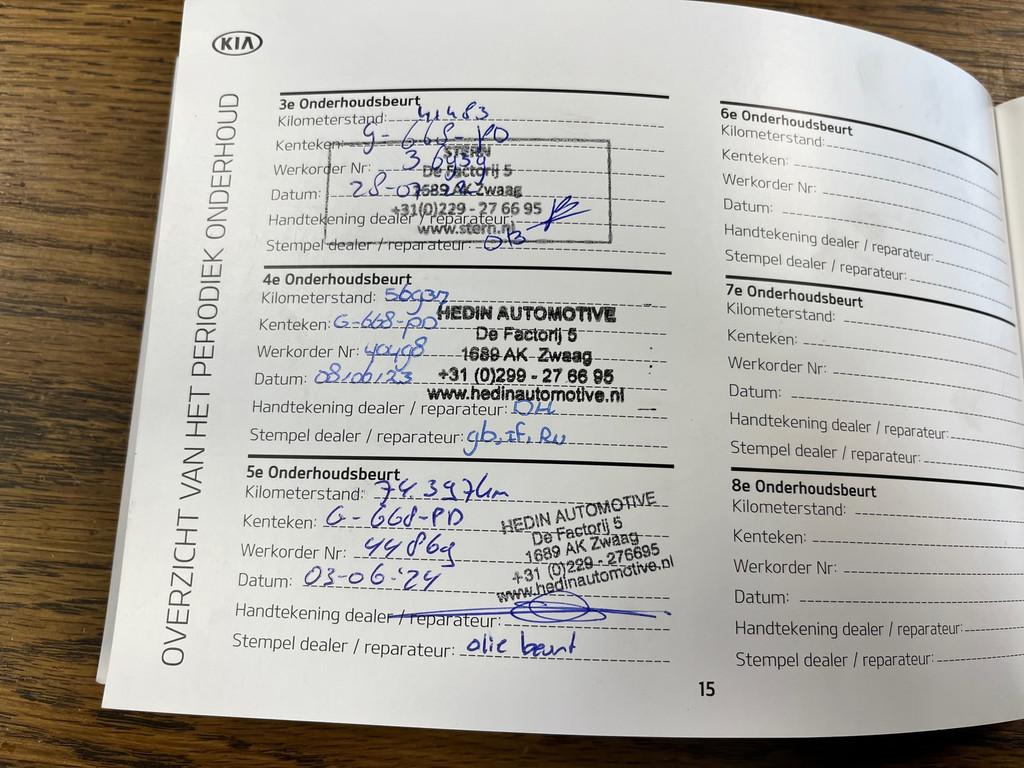 KIA
OVERZICHT VAN HET PERIODIEK ONDERHOUD
3e Onderhoudsbeurt
Kilometerstand: 41483
Kenteken: G-668-PD
Werkorder Nr: 36939
Datum: 28-07
Handtekening dealer / reparateur:
Stempel dealer / reparateur: OB
STERN
De Factorij 5
1689 AK Zwaag
+31(0)229 - 27 66 95
www.stern.nl
4e Onderhoudsbeurt
Kilometerstand: 56937
Kenteken: G-668-PD
Werkorder Nr: 40498
Datum: 08/06/23
Handtekening dealer / reparateur: OH
Stempel dealer / reparateur: gb, If, Ru
HEDIN AUTOMOTIVE
De Factorij 5
1689 AK Zwaag
+31 (0)299 - 27 66 95
www.hedinautomotive.nl
5e Onderhoudsbeurt
Kilometerstand: 74.397km
Kenteken: G-668-PD
Werkorder Nr: 44869
Datum: 03-06-'24
Handtekening dealer / reparateur:
Stempel dealer / reparateur: olie beurt
HEDIN AUTOMOTIVE
De Factorij 5
1689 AK Zwaag
+31 (0)229 - 276695
www.hedinautomotive.nl
6e Onderhoudsbeurt
Kilometerstand:
Kenteken:
Werkorder Nr:
Datum:
Handtekening dealer / reparateur:
Stempel dealer / reparateur:
7e Onderhoudsbeurt
Kilometerstand:
Kenteken:
Werkorder Nr:
Datum:
Handtekening dealer / reparateur:
Stempel dealer / reparateur:
8e Onderhoudsbeurt
Kilometerstand:
Kenteken:
Werkorder Nr:
Datum:
Handtekening dealer / reparateur:
Stempel dealer / reparateur:
15